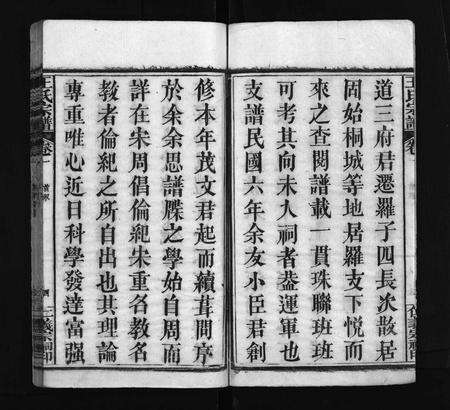 王氏宗譜
卷
道三府君遷羅子四長次散居
固始桐城等地居羅支下悅而
來之查閱譜載一貫珠聯班班
可考其向未入祠者葢運軍也
支譜民國六年余友小臣君創
修本年茂文君起而續葺問序
於余余思譜牒之學始自周而
詳在宋周倡倫紀宋重名教名
教者倫紀之所自出也其理論
專重唯心近日科學發達富強
王氏宗譜
卷